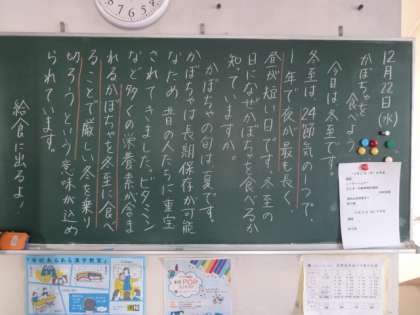 12月22日(水)
かぼちゃを
食べよう
今日は冬至です。
冬至は24節気の一つで、
1年で夜が最も長く
昼が短い日です。冬至の
日になぜかぼちゃを食べるか
知っていますか。
かぼちゃの旬は夏です。
かぼちゃは長期保存が可能
なため昔の人たちに重宝
されてきました。ビタミン
など多くの栄養素が含ま
れるかぼちゃを冬至に食べ
ることで厳しい冬を乗り
切ろうという意味が込め
られています。
給食に出るよ!